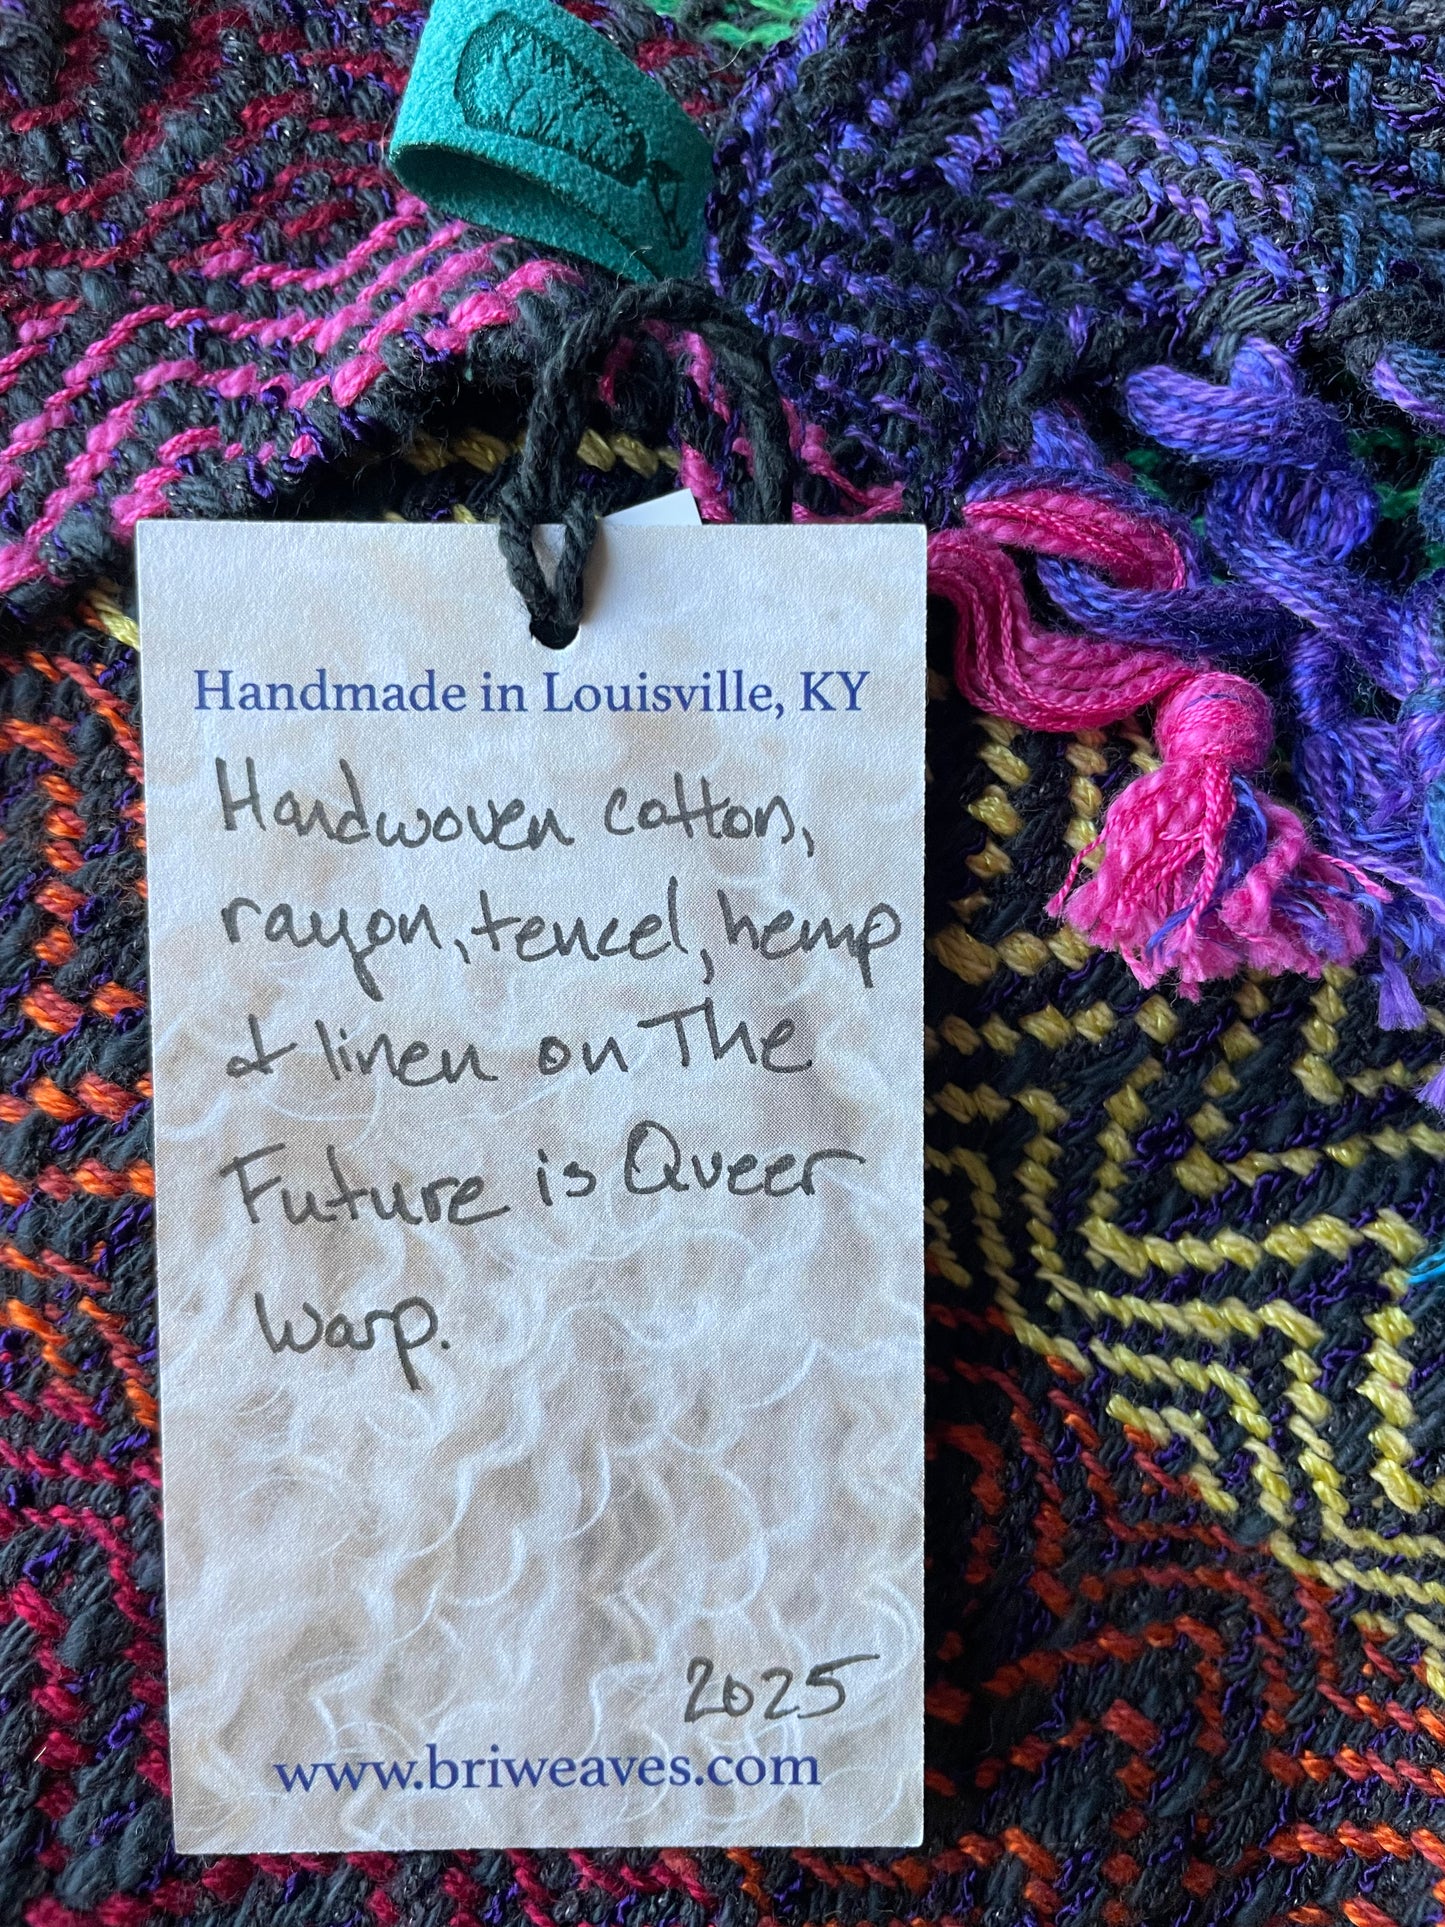 Handmade in Louisville, KY
Handwoven cotton,
rayon, tencel, hemp
& linen on The
Future is Queer
warp.
2025
www.briweaves.com